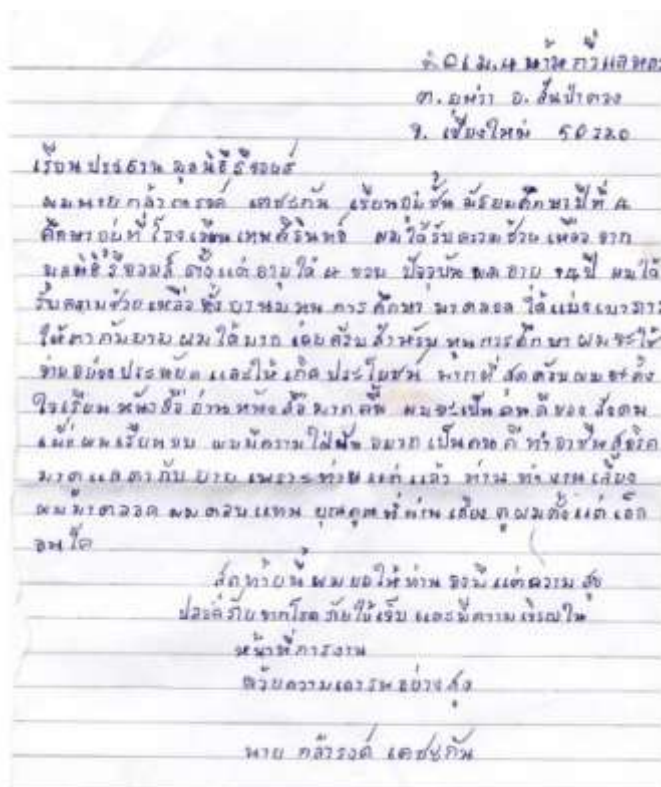 ม.4 บ้านกิ่วแลหลวง
ต.ยุหว่า อ.สันป่าตอง
จ.เชียงใหม่ 50120
เรียนประธาน มูลนิธิ
ผมนาย กล้าณรงค์ เดชะกัน เรียนอยู่ชั้น มัธยมศึกษาปีที่ 4
ศึกษาอยู่ที่ โรงเรียนเทพศิรินทร์ ผมได้รับความช่วยเหลือ จาก
มูลนิธิ ตั้งแต่ อายุได้ ขวบ ปัจจุบัน ผม อายุ ปี ผมได้
รับความช่วยเหลือ ทั้ง ทุน การศึกษา มาตลอด ได้แบ่งเบาภาระ
ให้ตา กับยาย ผมได้มาก เลยครับ สำหรับ ทุนการศึกษา ผมจะใช้
จ่ายอย่างประหยัด และให้ เกิด ประโยชน์ มากที่สุดครับ ผมจะตั้ง
ใจเรียน หนังสือ อ่านหนังสือ มากขึ้น ผมจะเป็น คนดีของ สังคม
ผมเรียนจบ ผมมีความใฝ่ฝัน อยาก เป็นคน ดี ทำอาชีพ สุจริต
มาดูแล ตากับ ยาย เพราะ ท่าน แก่ แล้ว ท่าน ทำงาน เลี้ยง
ผมมาตลอด ผม ตอบแทน บุญคุณ ที่ท่าน เลี้ยง ดู ผมตั้งแต่ เด็ก
จนโต
สุดท้ายนี้ ผมขอให้ท่าน จงมี แต่ความ สุข
ปราศจากโรค ภัยไข้เจ็บ และมีความ เจริญใน
หน้าที่การงาน
ด้วยความเคารพ อย่าง สูง
นาย กล้าณรงค์ เดชะกัน